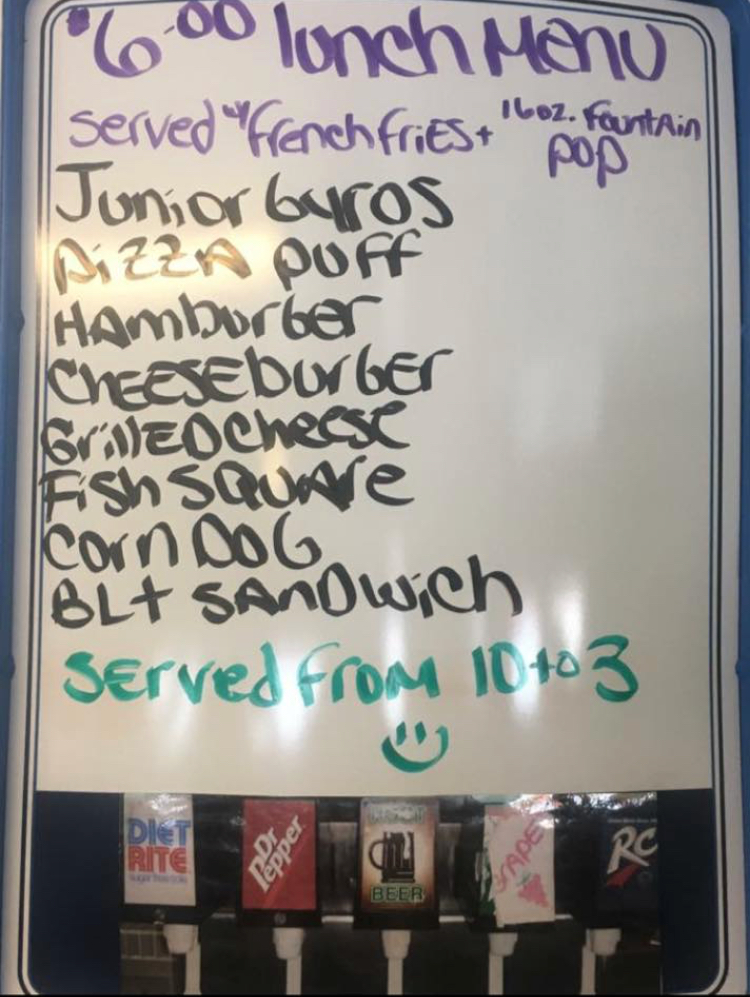 $6.00 lunch Menu
Served w/ french fries + 16oz. fountain
pop
Junior Gyros
Pizza puff
Hamburger
Cheeseburger
Grilled cheese
Fish square
Corn Dog
BLT SANDwich
Served from 10 to 3
DIET
RITE
Dr
Pepper
BEER
GRAPE
RC